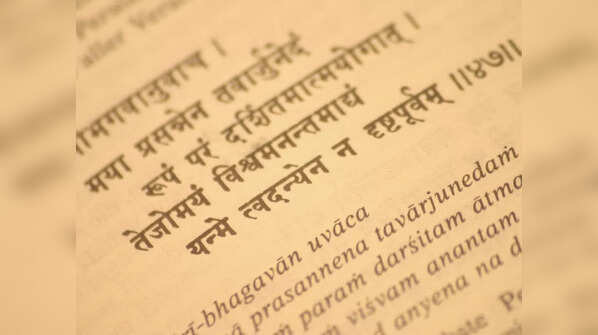 aller Vers
भगवानुवाच ।
मया प्रसन्नेन तवार्जुनेदं
रूपं परं दर्शितमात्मयोगात् ।
तेजोमयं विश्वमनन्तमाद्यं
यन्मे त्वदन्येन न दृष्टपूर्वम् ॥४७॥
ī-bhagavān uvāca
ā prasannena tavārjunedaṁ
ṁ paraṁ darśitam ātma
ṁ viśvam anantam
d anyena na d